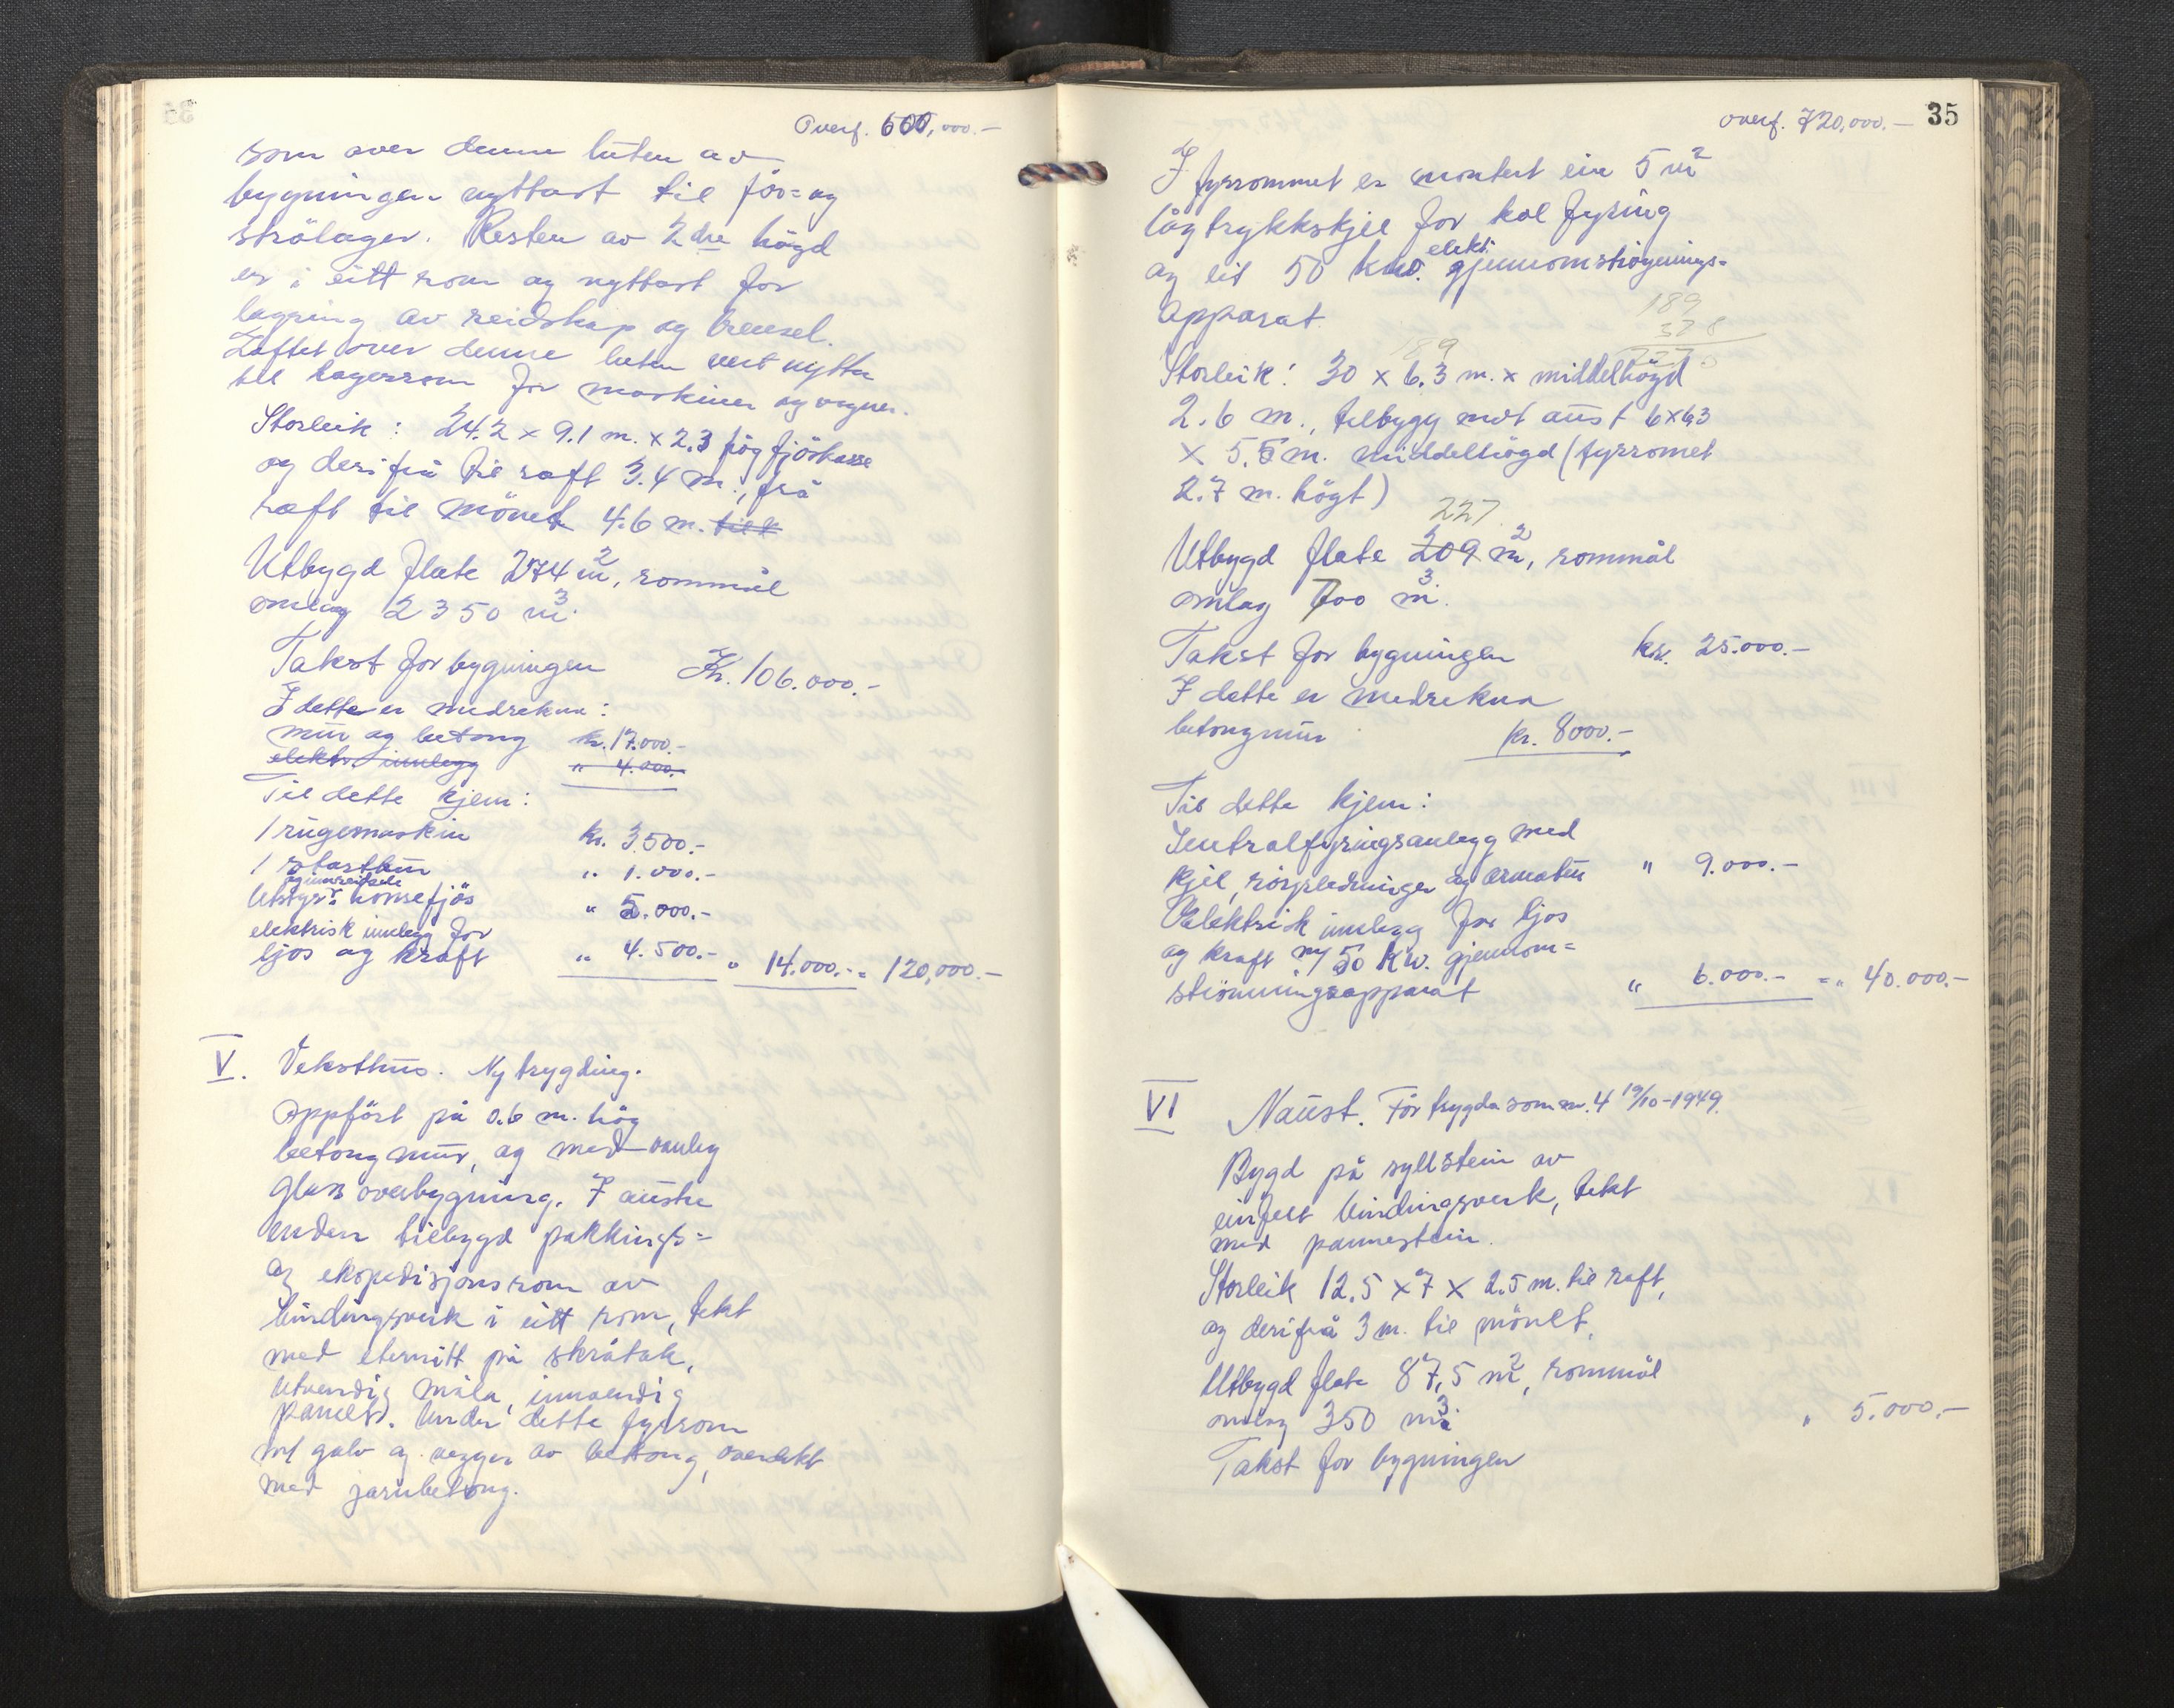 Overf. 600,000.-
som over denne luten av
bygningen nyttast til fór= og
strölager. Resten av 2dre högd
er i eitt rom og nyttast for
lagring av reidskap og brensel.
Loftet over denne luten vert nytta
til lagerrom for maskiner og vogner.
Storleik: 24.2 x 9.1 m. x 2.3 høg fjöskasse
og derifrå til raft 3.4 m., frå
raft til mönet 4.6 m. til k
Utbygd flate 274 m2, rommål
omlag 2350 m3.
Takst for bygningen Kr. 106.000.-
I dette er medrekna:
mur og betong kr. 17.000.-
elektr. innlegg " 4.000.-
Til dette kjem:
1 rugemaskin kr. 3.500.-
1 " 1.000.-
og innreiidsle
Utstyr i hönsefjös " 5.000.-
elektrisk innlegg for
ljos og kraft " 4.500.- " 14.000.- = 120,000.-
V. Veksthus. Nybygding.
Oppfört på 0.6 m. høg
betongmur, og med vanleg
glas overbygning. I austre
enden tilbygd pakkings=
og ekspedisjonsrom av
bindingsverk i eitt rom, tekt
med eternitt på skråtak,
utvendig måla, innvendig
panelt. Under dette fyrrom
m/ golv og vegger av betong, overdekt
med jarnbetong.
overf. 720,000.- 35
I fyrrommet er montert ein 5 m2
lågtrykkskjel for kol fyring
elektr.
og eit 50 kw. gjennomströymings=
apparat.
189
378
Storleik: 30 x 6.3 m. x middelhögd
2.6 m., tilbygg mot aust 6x6,3
x 5.5 m. middelhögd (fyrromet
2.7 m. högt)
227
Utbygd flate 209 m2, rommål
omlag 700 m3.
Takst for bygningen kr. 25.000.-
I dette er medrekna
betongmur kr. 8000.-
Til dette kjem:
Sentralfyringsanlegg med
kjel, rörledninger og armatur " 9.000.-
Elektrisk innlegg for ljos
og kraft m/ 50 kw. gjennom=
strömningsapparat " 6.000.- = " 40.000.-
VI Naust. För bygda som nr. 4 19/10-1949.
Bygd på syllstein av
einfelt bindingsverk, tekt
med pannestein.
Storleik 12.5 x 7 x 2.5 m. til raft,
og derifrå 3 m. til mönet.
Utbygd flate 87,5 m2, rommål
omlag 350 m3.
Takst for bygningen " 5.000.-